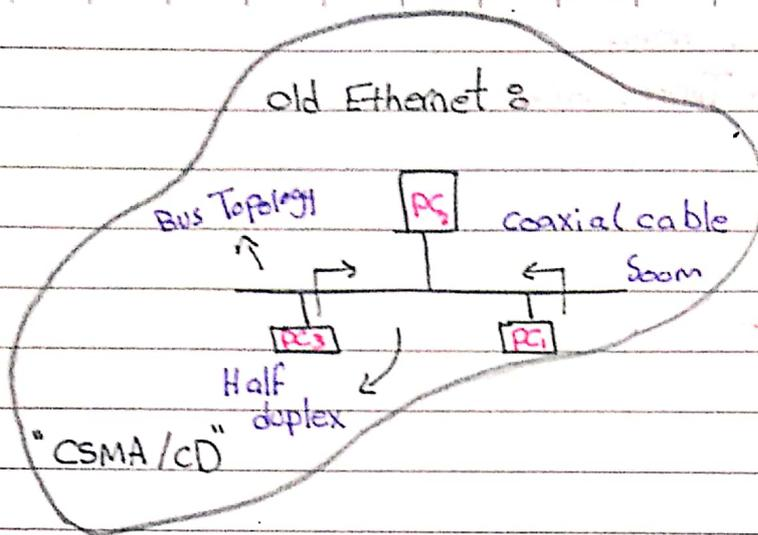 old Ethernet :
Bus Topology
PC
coaxial cable
500m
PC3
PC1
Half
duplex
"CSMA/CD"